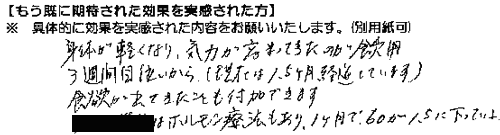 【もう既に期待された効果を実感された方】
※ 具体的に効果を実感された内容をお願いいたします。(別用紙可)
身体が軽くなり、気力が 飲用
3週間目位いから(現在は1.5ヶ月経過しています)
食欲が出てきたことも付加できます
はホルモン療法もあり、1ヶ月で60が1.5に下ってい